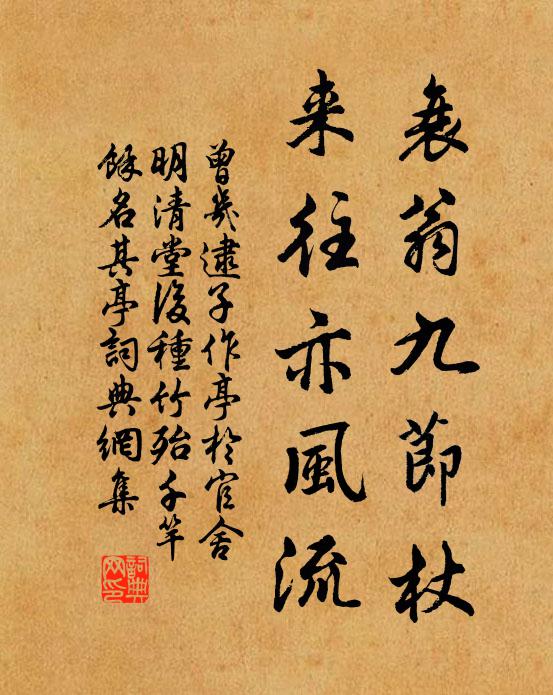 衰翁九節杖
来往亦風流
曾幾逮子作亭於官舍
明清堂後種竹殆千竿
餘名其亭詞典網集
詞典網印